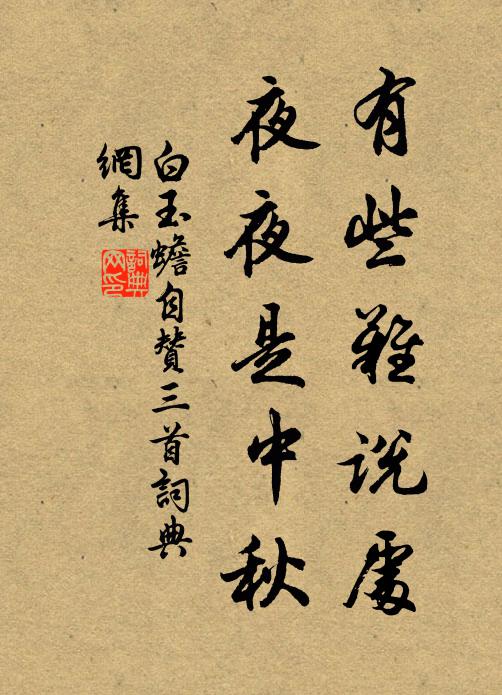 有些難説處
夜夜是中秋
白玉蟾自贊三首詞典
網集
詞典
网印